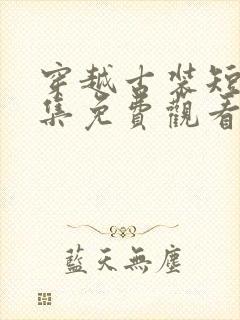 穿越古裝短
集免費觀看
藍天無塵